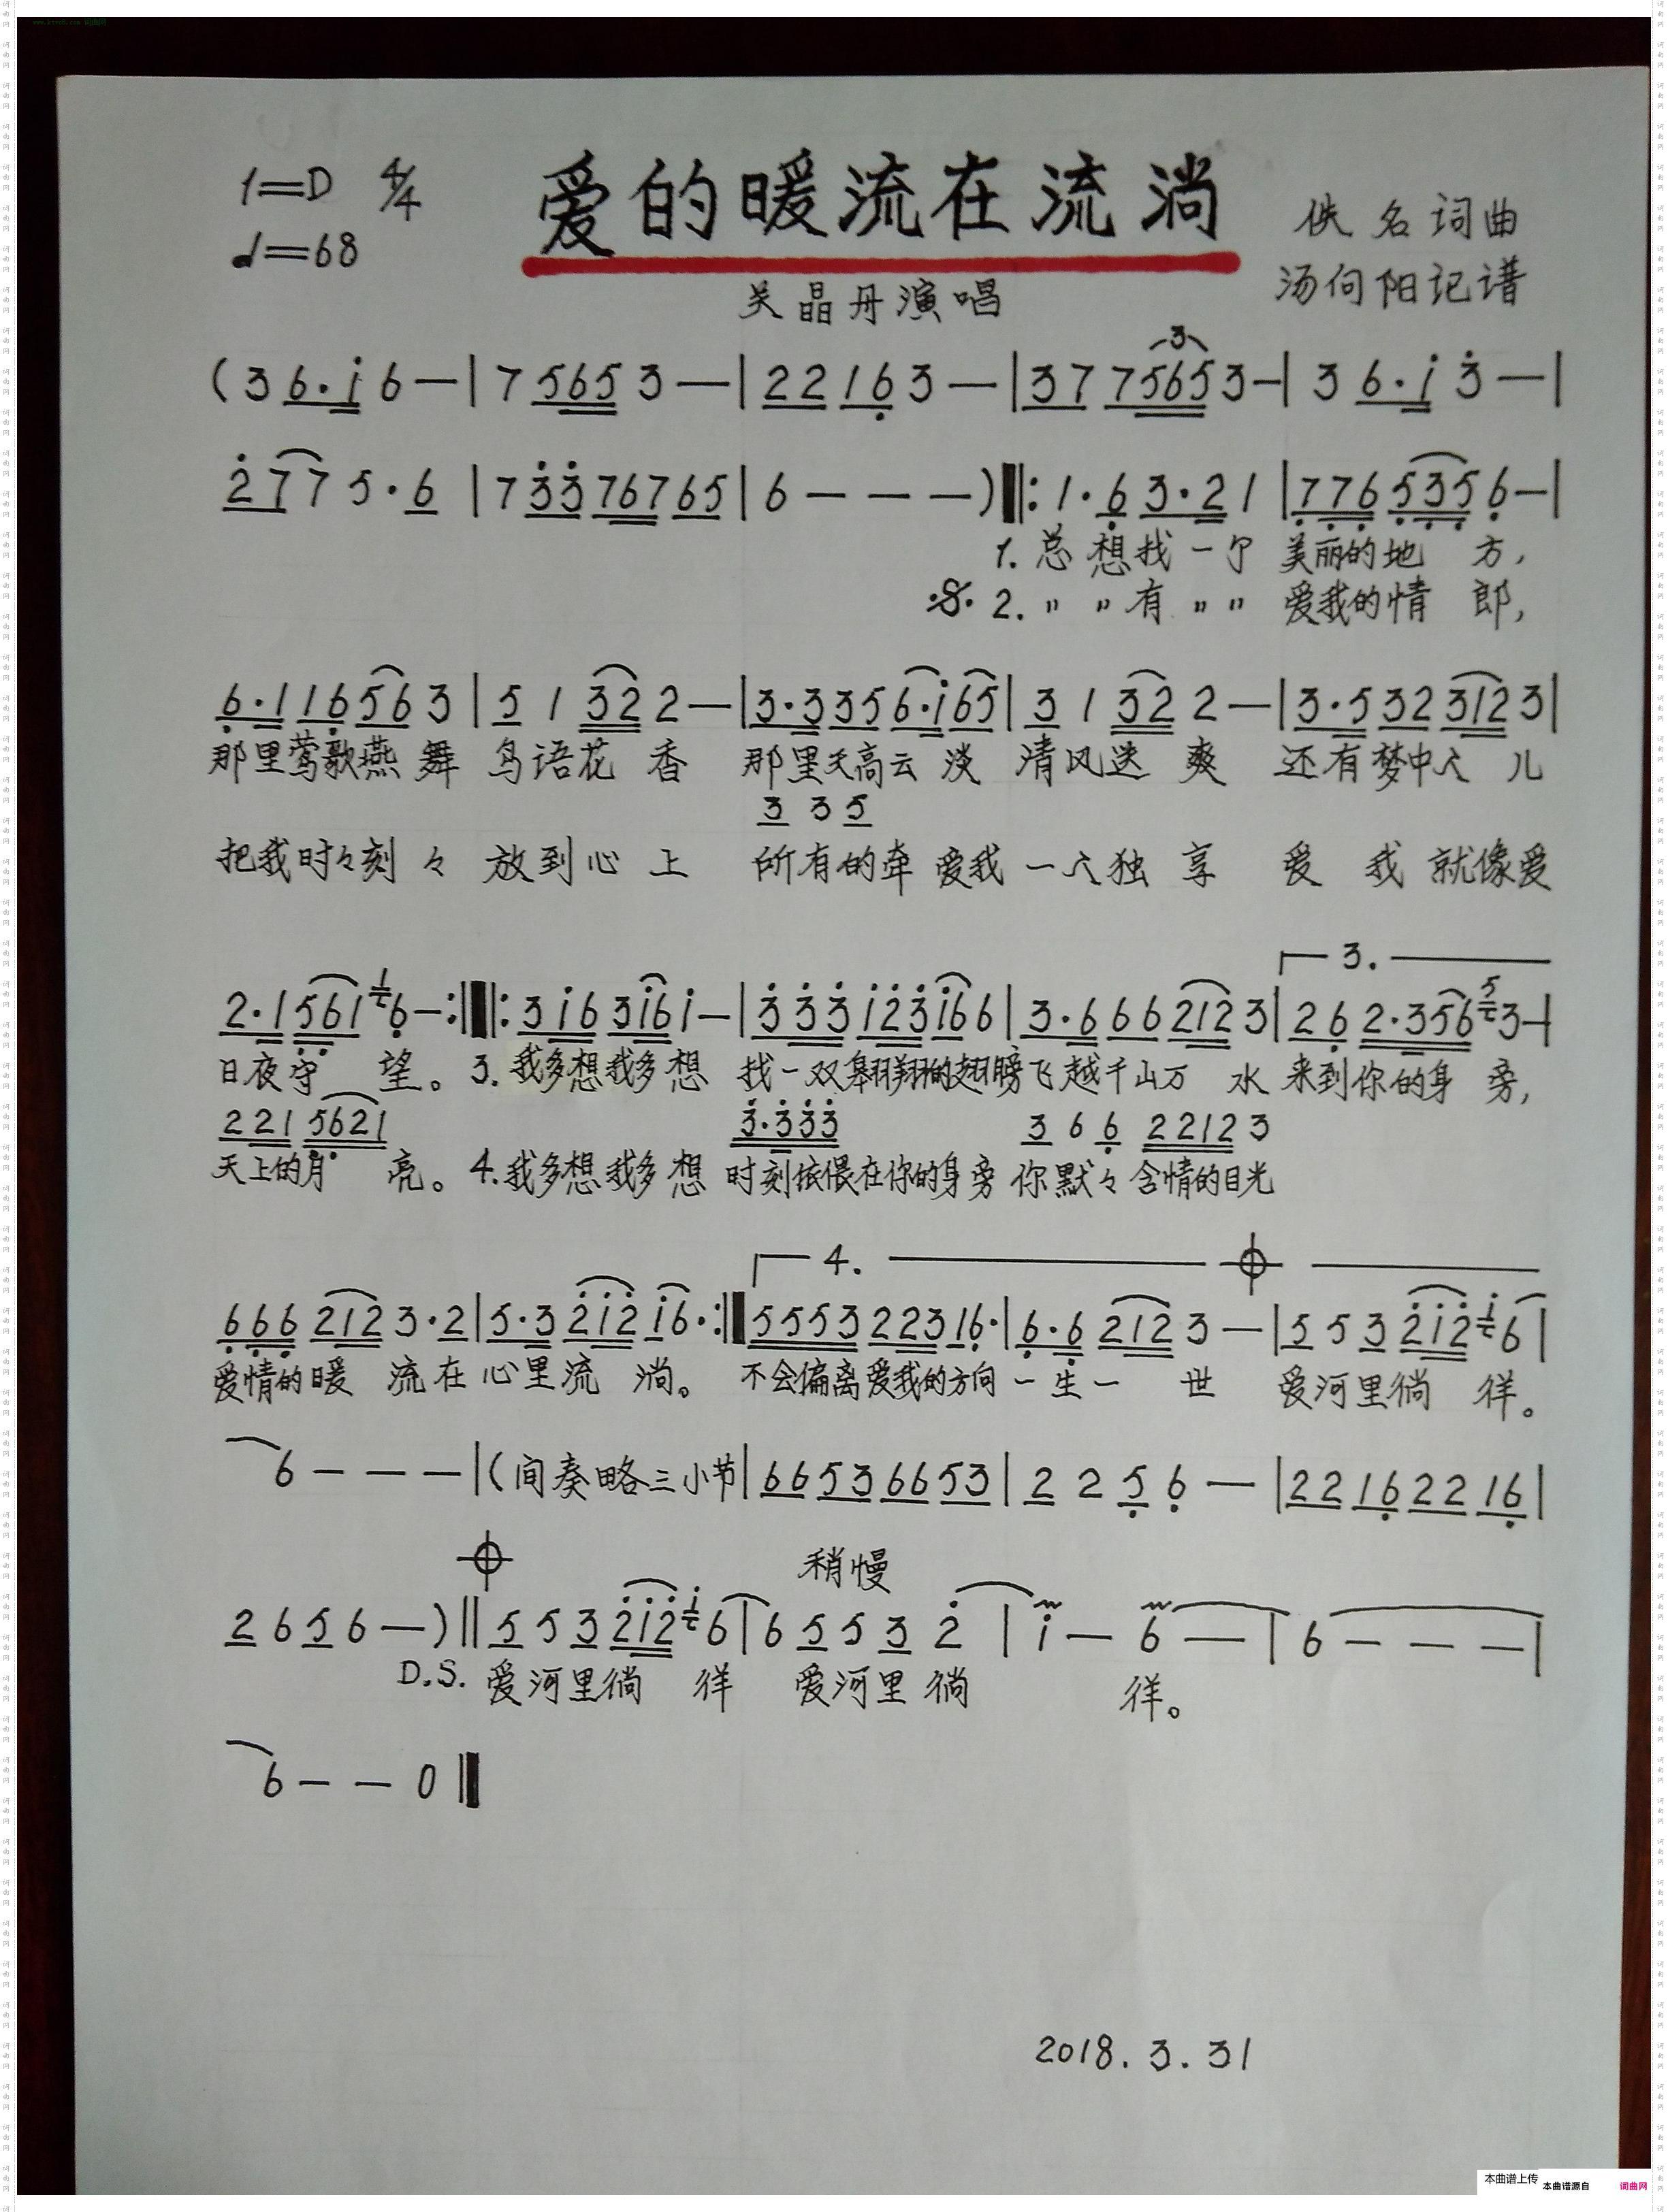 1=D 4/4 爱的暖流在流淌 佚名词曲
♩=68 汤向阳记谱
吴晶丹演唱
3
(3 6·i 6 — | 7 565 3 — | 22 16 3 — | 37 7565 3— | 3 6·i 3 — |
2 7 7 5·6 | 7 33 767 65 | 6 — — — ) ‖: 1·6 3·2 1 | 776 535 6 — |
1. 总想找一个 美丽的地 方,
𝄋 2. 〃 〃 有 〃 〃 爱我的情 郎,
6·1 16 56 3 | 5 1 32 2 — | 3·3 35 6·i 65 | 3 1 32 2 — | 3·5 32 312 3 |
那里莺歌燕 舞 鸟语花 香 那里天高云 淡 清风送 爽 还有梦中人 儿
3 3 5
把我时々刻 々 放到心 上 所有的牵 爱我一人独 享 爱 我 就像爱
3.
2·1 561 6 — :‖: 3i6 3i6 i — | 333 i23 i6 6 | 3·6 66 212 3 | 26 2·356 3 — |
日夜守 望。 3. 我多想我多 想 找一双翱翔的翅膀 飞越千山万 水 来到你的身 旁,
221 5621 3·333 3 6 6 2212 3
天上的月 亮。 4. 我多想我多 想 时刻依偎在你的身旁 你默々含情的目光
4.
666 212 3·2 | 5·3 2i2 i6· :‖ 5553 223 16· | 6·6 212 3 — | 5 5 3 2i2 6 |
爱情的暖 流在心里流 淌。 不会偏离爱我的方向 一生一 世 爱河里徜 徉。
6 — — — | (间奏略三小节 | 66 53 66 53 | 2 2 5 6 — | 22 16 22 16 |
稍慢
2 6 5 6 — ) ‖ 5 5 3 2i2 6 | 6 5 5 3 2 | i — 6 — | 6 — — — |
D.S. 爱河里徜 徉 爱河里徜 徉。
6 — — 0 ‖
2018.3.31
本曲谱上传
本曲谱源自 词曲网